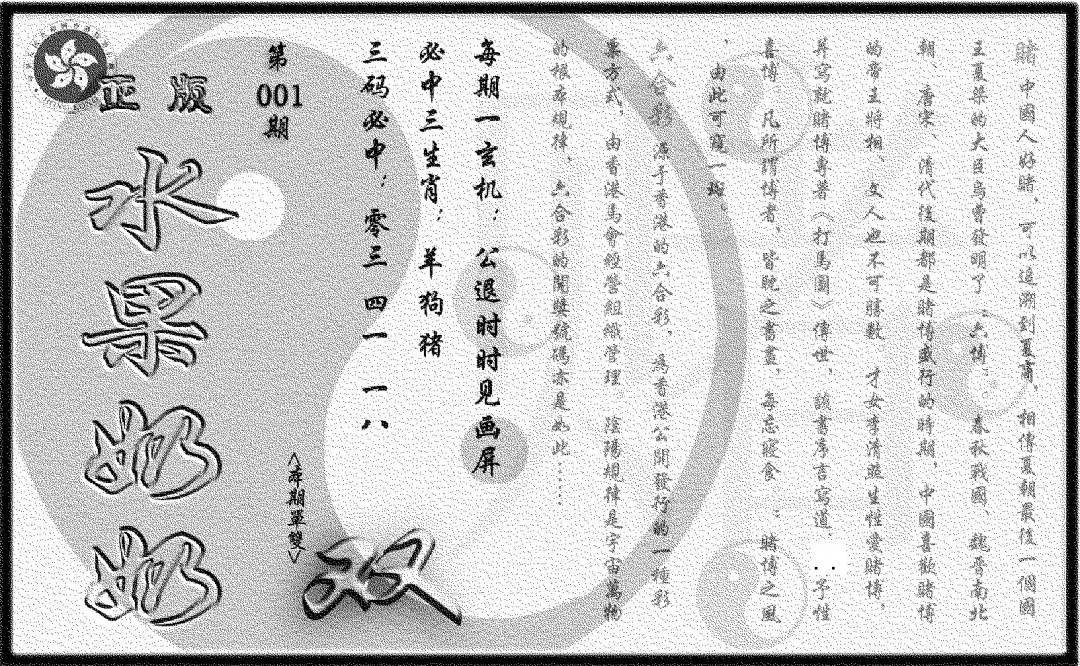 賭 中國人好賭、可以追溯到夏商，相傳夏朝最後一個國
王夏桀的大臣烏曹發明了“六博”。春秋戰國、魏晉南北
朝、唐宋、清代後期都是賭博盛行的時期，中國喜歡賭博
的帝王將相 文人也不可勝數 才女李清照生性愛賭博，
并寫就賭博專著《打馬圖》傳世，該書序言寫道：..予性
喜博。凡所謂博者，皆耽之晝，每忘寢食 ；賭博之風
、由此可窺一斑。
六合彩 源于香港的六合彩，為香港公開發行的一種彩
票方式，由香港馬會經營組織管理。陰陽規律是宇宙萬物
的根本規律，六合彩的開獎號碼亦是如此……
每期一玄机：公退时时见画屏
必中三生肖：羊狗猪
三码必中：零三 四一 一八
第
001
期
<本期單雙>
双
正版
水果奶奶